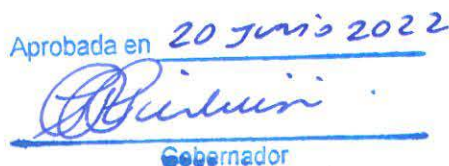 Aprobada en 20 Junio 2022
Gobernador